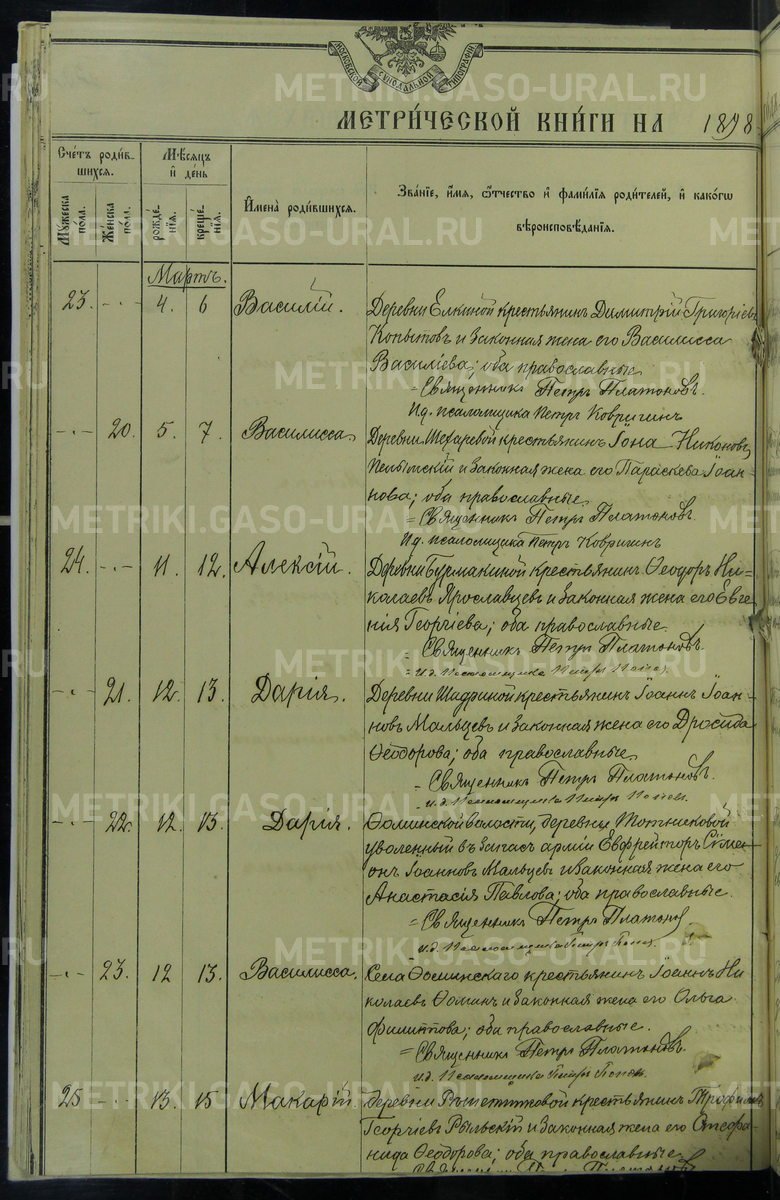 МОСКОВСКОЙ СѴНОДАЛЬНОЙ ТИПОГРАФІИ
МЕТРИ́ЧЕСКОЙ КНИ́ГИ НА 1898
Сче́тъ роди́вшихся.
Мѣ́сяцъ и де́нь
Мꙋ́жеска по́ла.
Же́нска по́ла.
рожде́нїѧ.
креще́нїѧ.
Имена̀ роди́вшихсѧ.
Зва́нїе, и́мѧ, ѻ҆́тчество и фами́лїѧ роди́телей, и како́гѡ вѣроисповѣ́данїѧ.
Мартъ.
23. -·- 4. 6 Василій. Деревни Елкиной крестьянинъ Димитрій Григоріевъ
Копытовъ и законная жена его Василисса
Василіева; оба православные
= Священникъ Петръ Платоновъ.
И.д. псаломщика Петръ Ковригинъ
-·- 20. 5. 7. Василисса. Деревни крестьянинъ Іона Никоновъ
Пелымскій и законная жена его Параскева Іоан-
нова; оба православные
= Священникъ Петръ Платоновъ.
И.д. псаломщика Петръ Ковригинъ
24. -·- 11. 12. Алексій. Деревни Бурмакиной крестьянинъ Ѳеодоръ Ни-
колаевъ Ярославцевъ и законная жена его Евге-
нія Георгіева; оба православные.
= Священникъ Петръ Платоновъ.
= и.д. Псаломщика Петръ
-·- 21. 12. 13. Дарія. Деревни Шадриной крестьянинъ Іоаннъ Іоан-
новъ Мальцевъ и законная жена его Дросида
Ѳеодорова; оба православные.
= Священникъ Петръ Платоновъ.
= и.д. Псаломщика Петръ
-·- 22. 12. 13. Дарія. Ѳоминской волости, деревни
уволенный въ запасъ арміи Евфрейторъ Сѵме-
онъ Іоанновъ Мальцевъ и законная жена его
Анастасія Павлова; оба православные.
= Священникъ Петръ Платоновъ
и.д. Псаломщика Петръ
-·- 23. 12 13. Василисса. Села Ѳоминскаго крестьянинъ Іоаннъ Ни
колаевъ Ѳоминъ и законная жена его Ольга
Филиппова; оба православные.
= Священникъ Петръ Платоновъ.
и.д. Псаломщика Петръ
25 -·- 13. 15 Макарій. Деревни крестьянинъ Трофимъ
Георгіевъ Рыльскій и законная жена его Стефа-
нида Ѳеодорова; оба православные
Священникъ Петръ Платоновъ
METRIKI.GASO-URAL.RU